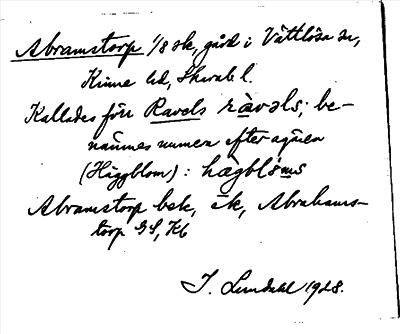 Abramstorp 1/8 sk, gård i Vättlösa sn,
Kinne hd, Skarab. l.
Kallades förr Ravels ràvəls; be-
nämnes numera efter ägaen
(Häggblom): hægblóms
Abramstorp bsk, ek, Abrahams-
torp GS, Kb
I. Lundahl 1928.